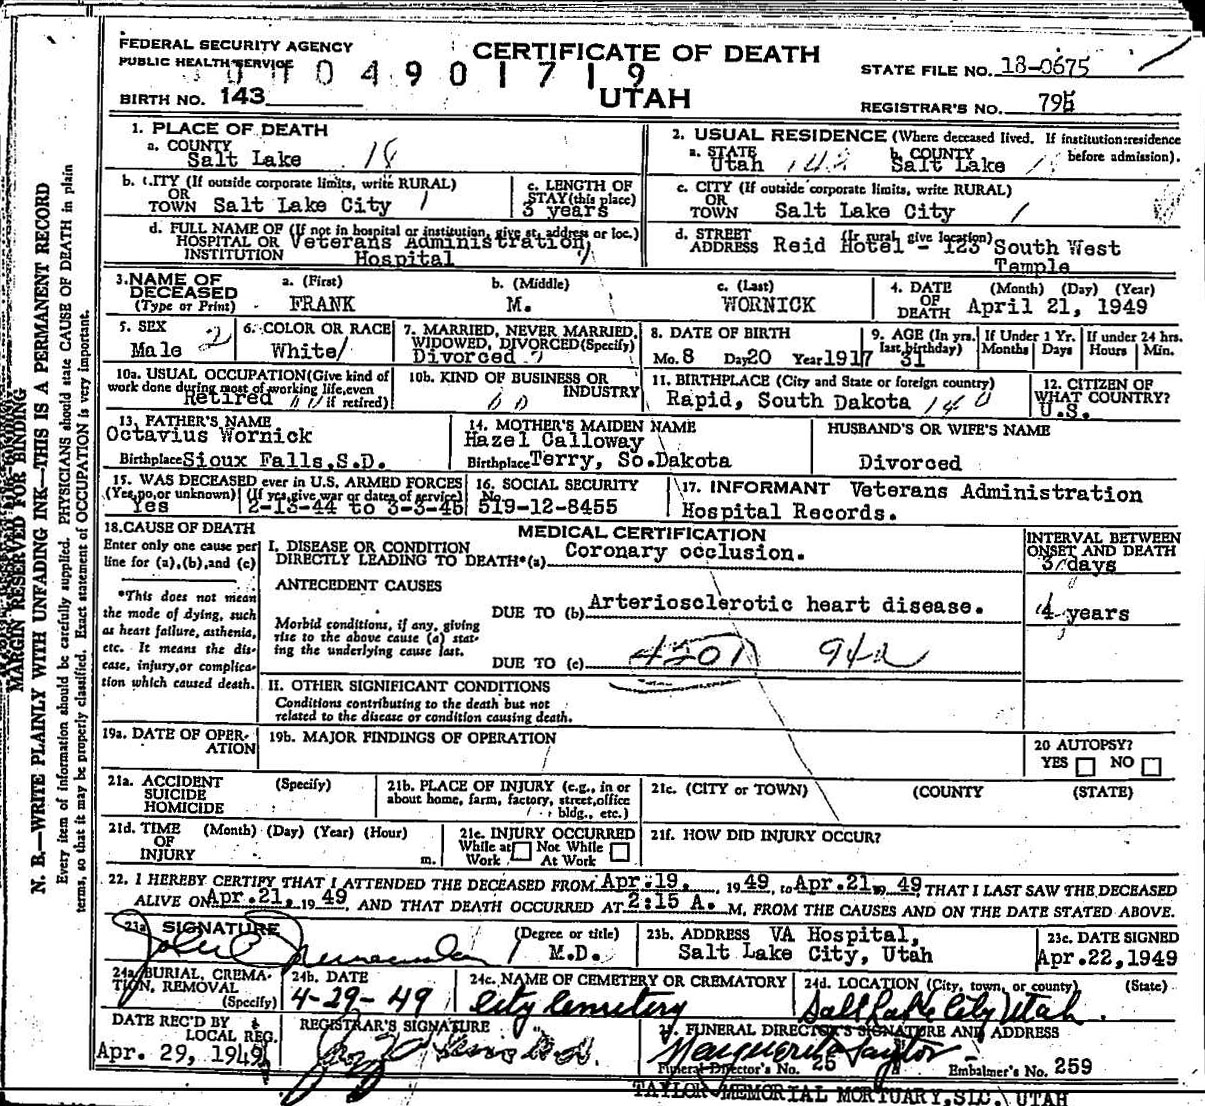 FEDERAL SECURITY AGENCY
PUBLIC HEALTH SERVICE
CERTIFICATE OF DEATH
0 4 9 0 1 7 1 9
STATE FILE NO. 18-0675
BIRTH NO. 143
UTAH
REGISTRAR'S NO. 795
1. PLACE OF DEATH
a. COUNTY
Salt Lake 18
2. USUAL RESIDENCE (Where deceased lived. If institution: residence before admission).
a. STATE Utah b. COUNTY Salt Lake
b. CITY (If outside corporate limits, write RURAL)
OR
TOWN Salt Lake City
c. LENGTH OF
STAY (this place)
3 years
c. CITY (If outside corporate limits, write RURAL)
OR
TOWN Salt Lake City
d. FULL NAME OF (If not in hospital or institution, give st. address or loc.)
HOSPITAL OR Veterans Administration
INSTITUTION Hospital
d. STREET (If rural give location)
ADDRESS Reid Hotel - 123 South West
Temple
3. NAME OF
DECEASED
(Type or Print)
a. (First)
FRANK
b. (Middle)
M.
c. (Last)
WORNICK
4. DATE (Month) (Day) (Year)
OF
DEATH April 21, 1949
5. SEX
Male 2
6. COLOR OR RACE
White
7. MARRIED, NEVER MARRIED,
WIDOWED, DIVORCED (Specify)
Divorced
8. DATE OF BIRTH
Mo. 8 Day 20 Year 1917
9. AGE (In yrs.
last birthday)
31
If Under 1 Yr.
Months Days
If under 24 hrs.
Hours Min.
10a. USUAL OCCUPATION (Give kind of
work done during most of working life, even
Retired if retired)
10b. KIND OF BUSINESS OR
INDUSTRY
11. BIRTHPLACE (City and State or foreign country)
Rapid, South Dakota
12. CITIZEN OF
WHAT COUNTRY?
U.S.
13. FATHER'S NAME
Octavius Wornick
Birthplace Sioux Falls, S.D.
14. MOTHER'S MAIDEN NAME
Hazel Calloway
Birthplace Terry, So. Dakota
HUSBAND'S OR WIFE'S NAME
Divorced
15. WAS DECEASED ever in U.S. ARMED FORCES
(Yes, no, or unknown) (If yes, give war or dates of service)
Yes 2-13-44 to 3-3-45
16. SOCIAL SECURITY
No.
519-12-8455
17. INFORMANT Veterans Administration
Hospital Records.
18. CAUSE OF DEATH
Enter only one cause per
line for (a), (b), and (c)
*This does not mean
the mode of dying, such
as heart failure, asthenia,
etc. It means the dis-
ease, injury, or complica-
tion which caused death.
MEDICAL CERTIFICATION
I. DISEASE OR CONDITION
DIRECTLY LEADING TO DEATH*(a) Coronary occlusion.
ANTECEDENT CAUSES
Morbid conditions, if any, giving
rise to the above cause (a) stat-
ing the underlying cause last.
DUE TO (b) Arteriosclerotic heart disease.
DUE TO (c) 4201 942
INTERVAL BETWEEN
ONSET AND DEATH
3 days
4 years
II. OTHER SIGNIFICANT CONDITIONS
Conditions contributing to the death but not
related to the disease or condition causing death.
19a. DATE OF OPER-
ATION
19b. MAJOR FINDINGS OF OPERATION
20 AUTOPSY?
YES NO
21a. ACCIDENT (Specify)
SUICIDE
HOMICIDE
21b. PLACE OF INJURY (e.g., in or
about home, farm, factory, street, office
bldg., etc.)
21c. (CITY or TOWN) (COUNTY (STATE)
21d. TIME (Month) (Day) (Year) (Hour)
OF
INJURY m.
21e. INJURY OCCURRED
While at Not While
Work At Work
21f. HOW DID INJURY OCCUR?
22. I HEREBY CERTIFY THAT I ATTENDED THE DECEASED FROM Apr. 19, 1949, to Apr. 21, 1949, THAT I LAST SAW THE DECEASED
ALIVE ON Apr. 21, 1949, AND THAT DEATH OCCURRED AT 2:15 A. M, FROM THE CAUSES AND ON THE DATE STATED ABOVE.
23a. SIGNATURE (Degree or title)
John M.D.
23b. ADDRESS VA Hospital,
Salt Lake City, Utah
23c. DATE SIGNED
Apr. 22, 1949
24a. BURIAL, CREMA-
TION, REMOVAL
(Specify)
24b. DATE
4-29-49
24c. NAME OF CEMETERY OR CREMATORY
City Cemetery
24d. LOCATION (City, town, or county) (State)
Salt Lake City Utah.
DATE REC'D BY
LOCAL REG.
Apr. 29, 1949
REGISTRAR'S SIGNATURE
25. FUNERAL DIRECTOR'S SIGNATURE AND ADDRESS
Marguerite Taylor
Funeral Director's No. 25 Embalmer's No. 259
TAYLOR MEMORIAL MORTUARY, SLC, UTAH
MARGIN RESERVED FOR BINDING
N. B.—WRITE PLAINLY WITH UNFADING INK—THIS IS A PERMANENT RECORD
Every item of information should be carefully supplied. PHYSICIANS should state CAUSE OF DEATH in plain
terms, so that it may be properly classified. Exact statement of OCCUPATION is very important.